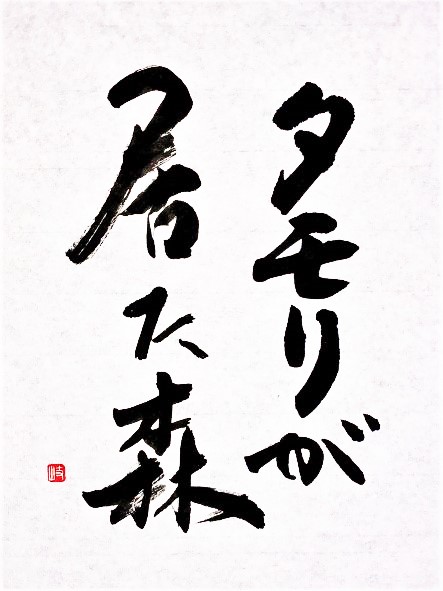 タモリが
居た森
岐